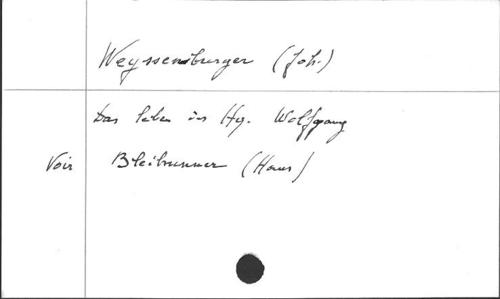 Weyssenburger (Joh.)
Das leben des Hg. Wolfgang
Voir Bleibrunner (Hans)